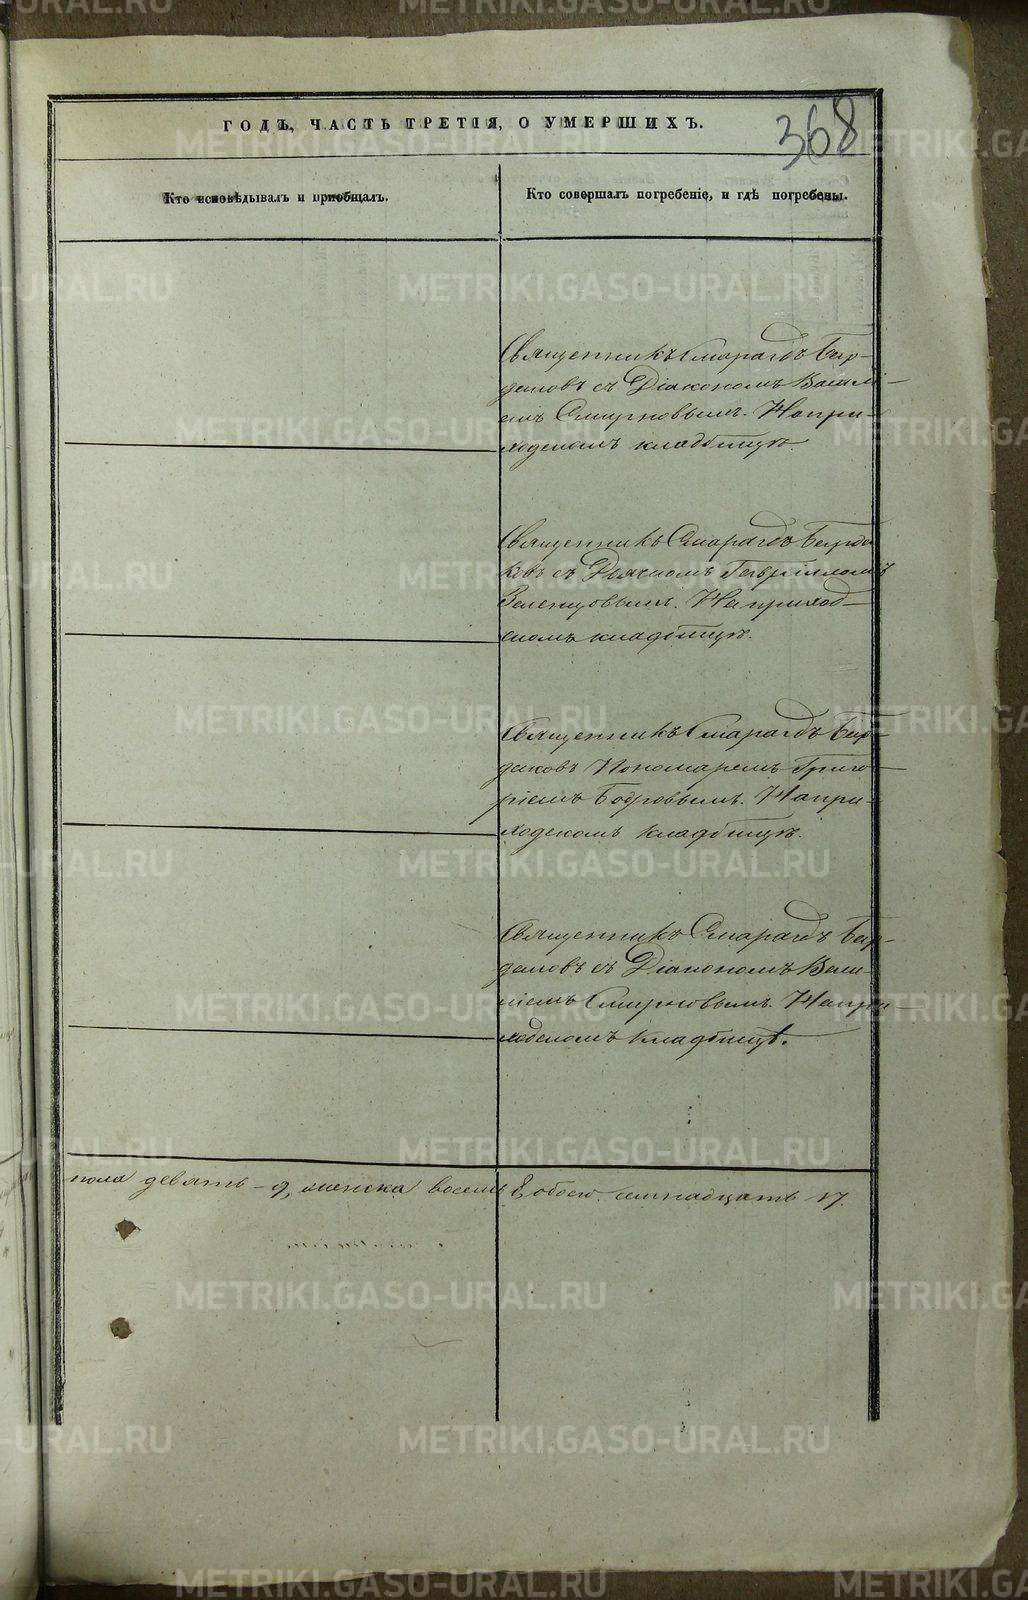 368
ГОДЪ, ЧАСТЬ ТРЕТІЯ, О УМЕРШИХЪ.
Кто исповѣдывалъ и пріобщалъ.
Кто совершалъ погребеніе, и гдѣ погребены.
Священникъ Смарагдъ Бир-
даковъ съ Діакономъ Васили-
емъ Смирновымъ. На при-
ходскомъ кладбищѣ.
Священникъ Смарагдъ Бирда
ковъ съ Дьячкомъ Гавріиломъ
Зеленцовымъ. На приход-
скомъ кладбищѣ.
Священникъ Смарагдъ Бир-
даковъ Пономаремъ Григо-
ріемъ Бодровымъ. На при-
ходскомъ кладбищѣ.
Священникъ Смарагдъ Бир-
даковъ съ Діакономъ Васи-
ліемъ Смирновымъ. На при-
ходскомъ кладбищѣ.
пола девять - 9, женска восемь 8, обоего семнадцать 17.
METRIKI.GASO-URAL.RU